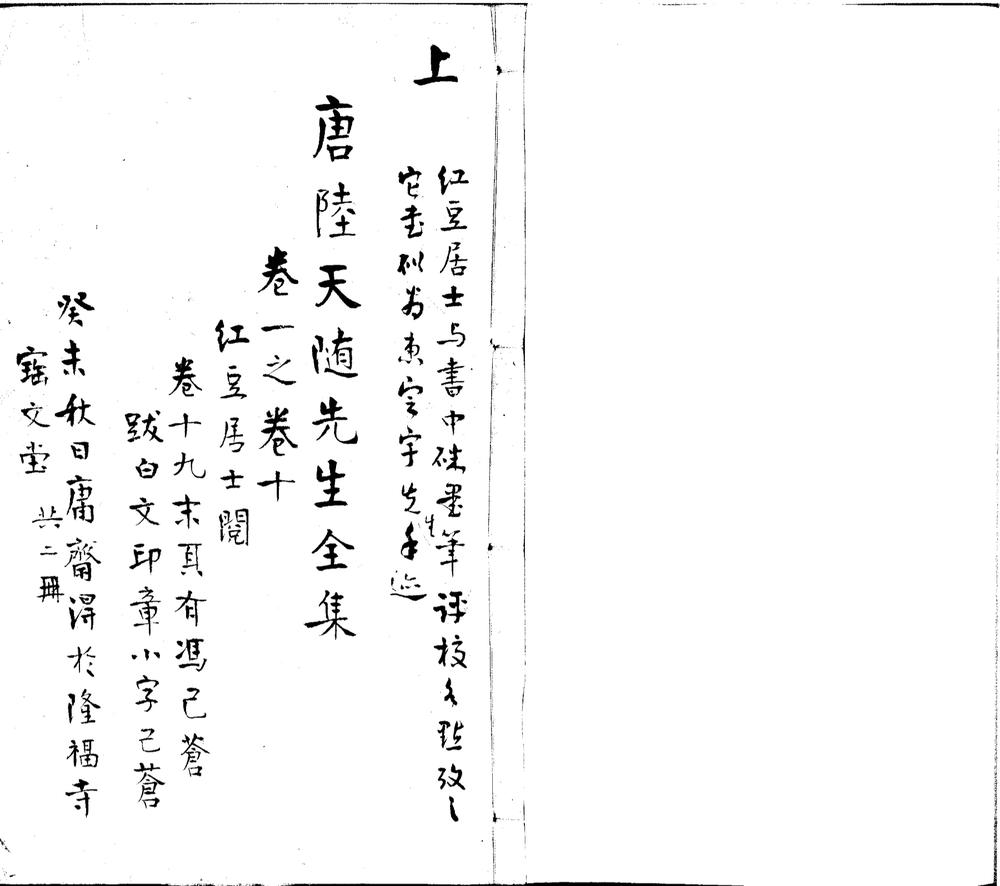 上
红豆居士与書中硃墨筆評校各點攷之
它書似为惠定宇先生手迹
唐陸天随先生全集
卷一之卷十
红豆居士閱
卷十九末頁有馮己蒼
跋白文印章小字己蒼
癸未秋日庸齋得於隆福寺
寶文堂 共二冊